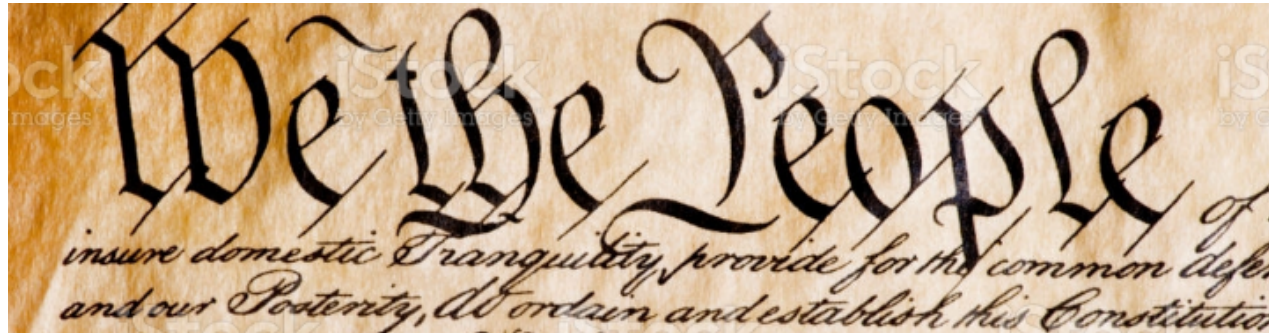 We the People of
insure domestic Tranquility, provide for the common defen
and our Posterity, do ordain and establish this Constitution
iStock
by Getty Images